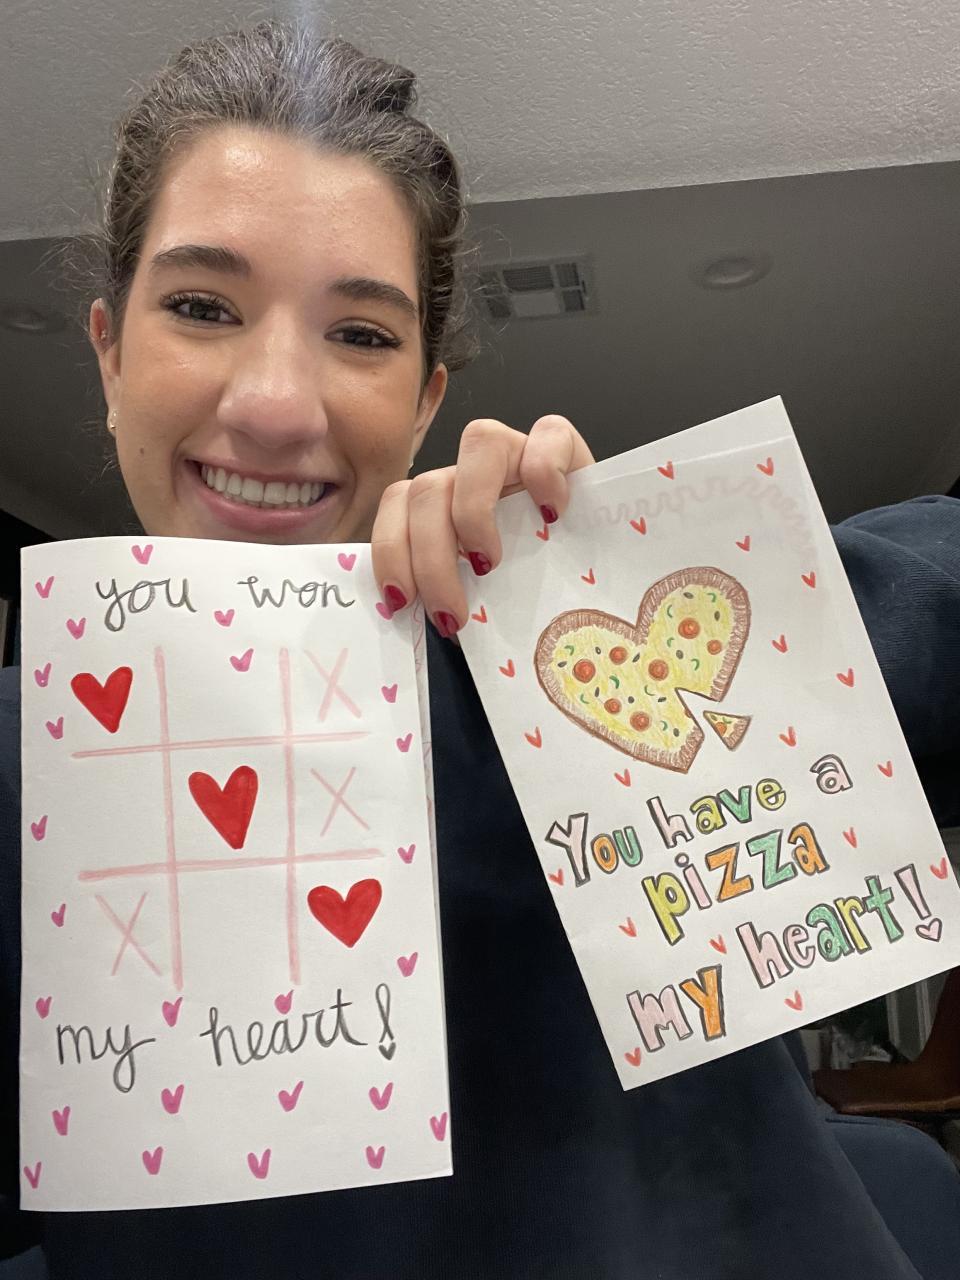 you won
X
X
X
my heart!
You have a
pizza
my heart!